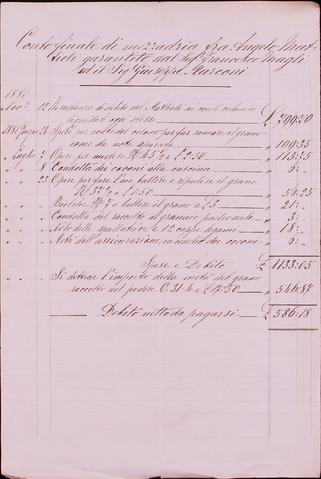 Conto finale di mezzadria fra Angelo Mat-
tioli garantito dal Sig Francesco Magli
ed il Sig Giuseppe Marconi
1880
Nov 12 Rimanenza di debito del Mattioli ai conti colonici
liquidati oggi stesso £ 799:20
1881 Giugno 28 Spese per conto del colono per far roncare il grano
come da nota separata " 109:35
" Luglio 7 Opere per mietere N 45 ½ a £ 2:50 " 113:75
" " 8 Condotta dei covoni alla cascina "
" " 23 Opere per fare l'aia battere e ripulire il grano
N 37 a 1:50
" " " Bioche N 7 a battere il grano a £ 3 " 21:
" " " Condotta del raccolto al granaio padronale "
" " " Nolo delle 12 legami " 18:
" " " Nota dell'assicurazione incendio dei covoni "
Spese e Debito £ 1133:05
Si detrae l'importo della metà del grano
raccolto nel podere C. 31.4 a £ 17:50 " 546:87
Debito netto da pagarsi £ 586:18